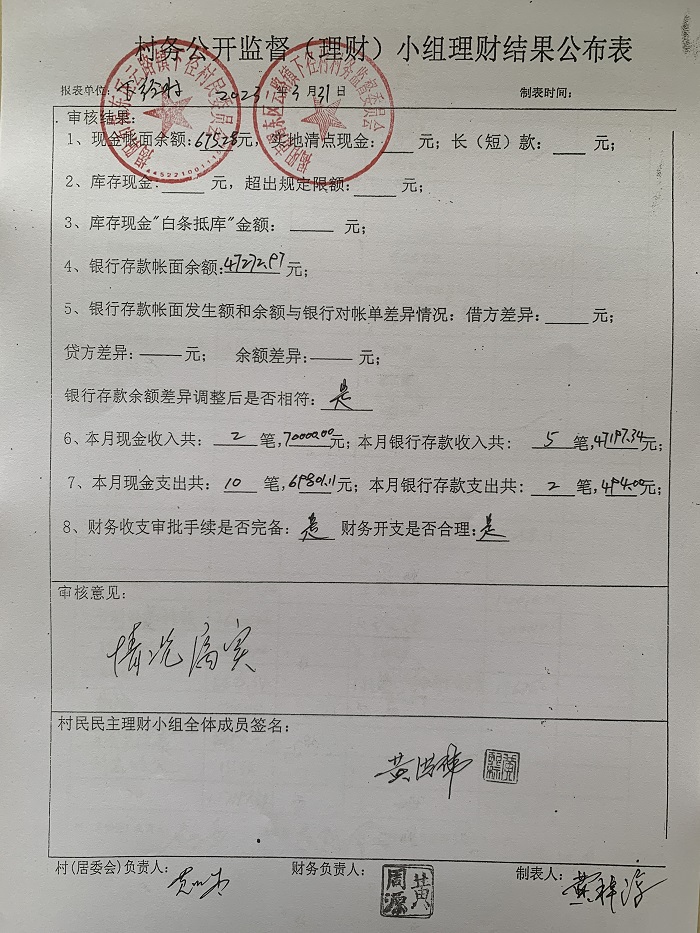 村务公开监督（理财）小组理财结果公布表
报表单位: 下径村 2023年3月21日 制表时间:
审核结果:
1、现金帐面余额: 元, 实地清点现金: 元; 长（短）款: 元;
2、库存现金: 元, 超出规定限额: 元;
3、库存现金"白条抵库"金额: 元;
4、银行存款帐面余额:47272.97元;
5、银行存款帐面发生额和余额与银行对帐单差异情况: 借方差异: 元;
贷方差异: 元; 余额差异: 元;
银行存款余额差异调整后是否相符: 是
6、本月现金收入共: 2 笔,70000.00元; 本月银行存款收入共: 5 笔,47197.34元;
7、本月现金支出共: 10 笔,69801.11元; 本月银行存款支出共: 2 笔,494.00元;
8、财务收支审批手续是否完备: 是 财务开支是否合理:是
审核意见:
情况属实
村民民主理财小组全体成员签名:
村(居委会)负责人: 财务负责人: 黄周源 制表人: